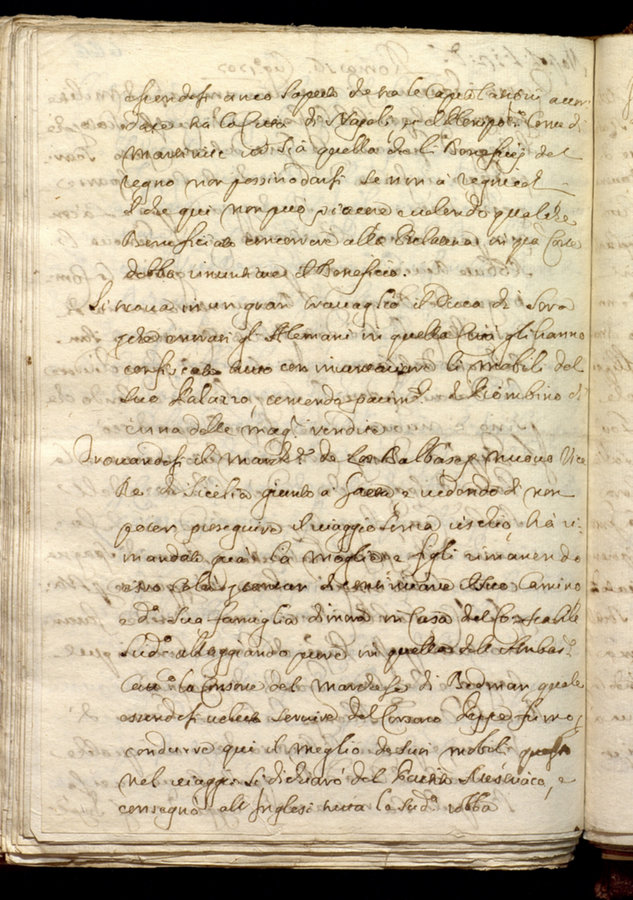 essendosi anco saputo che tra le Capitolationi accor
date trà la Città di Napoli, e il Conte di
Martinitz vi sia quella che li Beneficij del
Regno non possino darsi se non à regnicoli
il che quì non può piacere e volendo qualche
Beneficiato concorrere alla Prelatura in questa Corte
debba rinuntiare il Beneficio.
Si trova in un gran travaglio il Duca di Sora
che entrati gl'Alemani in quella Città gli hanno
confiscato tutto con inventariare li mobili del
suo Palazzo, temendo parim.te di Piombino di
una delle mag.ri rendite
Trovandosi il March.e de Los Balbases nuovo Vice
Re di Sicilia giunto a Gaeta e vedendo di non
poter proseguire il viaggio senza rischio, hà ri
mandato quà la moglie e figli rimanendo
esso colà p tentar di continuare il suo Camino
e d.a sua famiglia si trova in Casa del Contestabile
sud.o alloggiando pure in quella dell'Ambas.r
Catt.o la Consorte del Marchese di Bedmar quale
essendosi voluto servire del Corsaro Peppe fumo p
condurre quì il meglio de suoi mobili questo
nel viaggio si dichiarò del Partito Austriaco, e
consegnò all'Inglesi tutta la sud.a robba